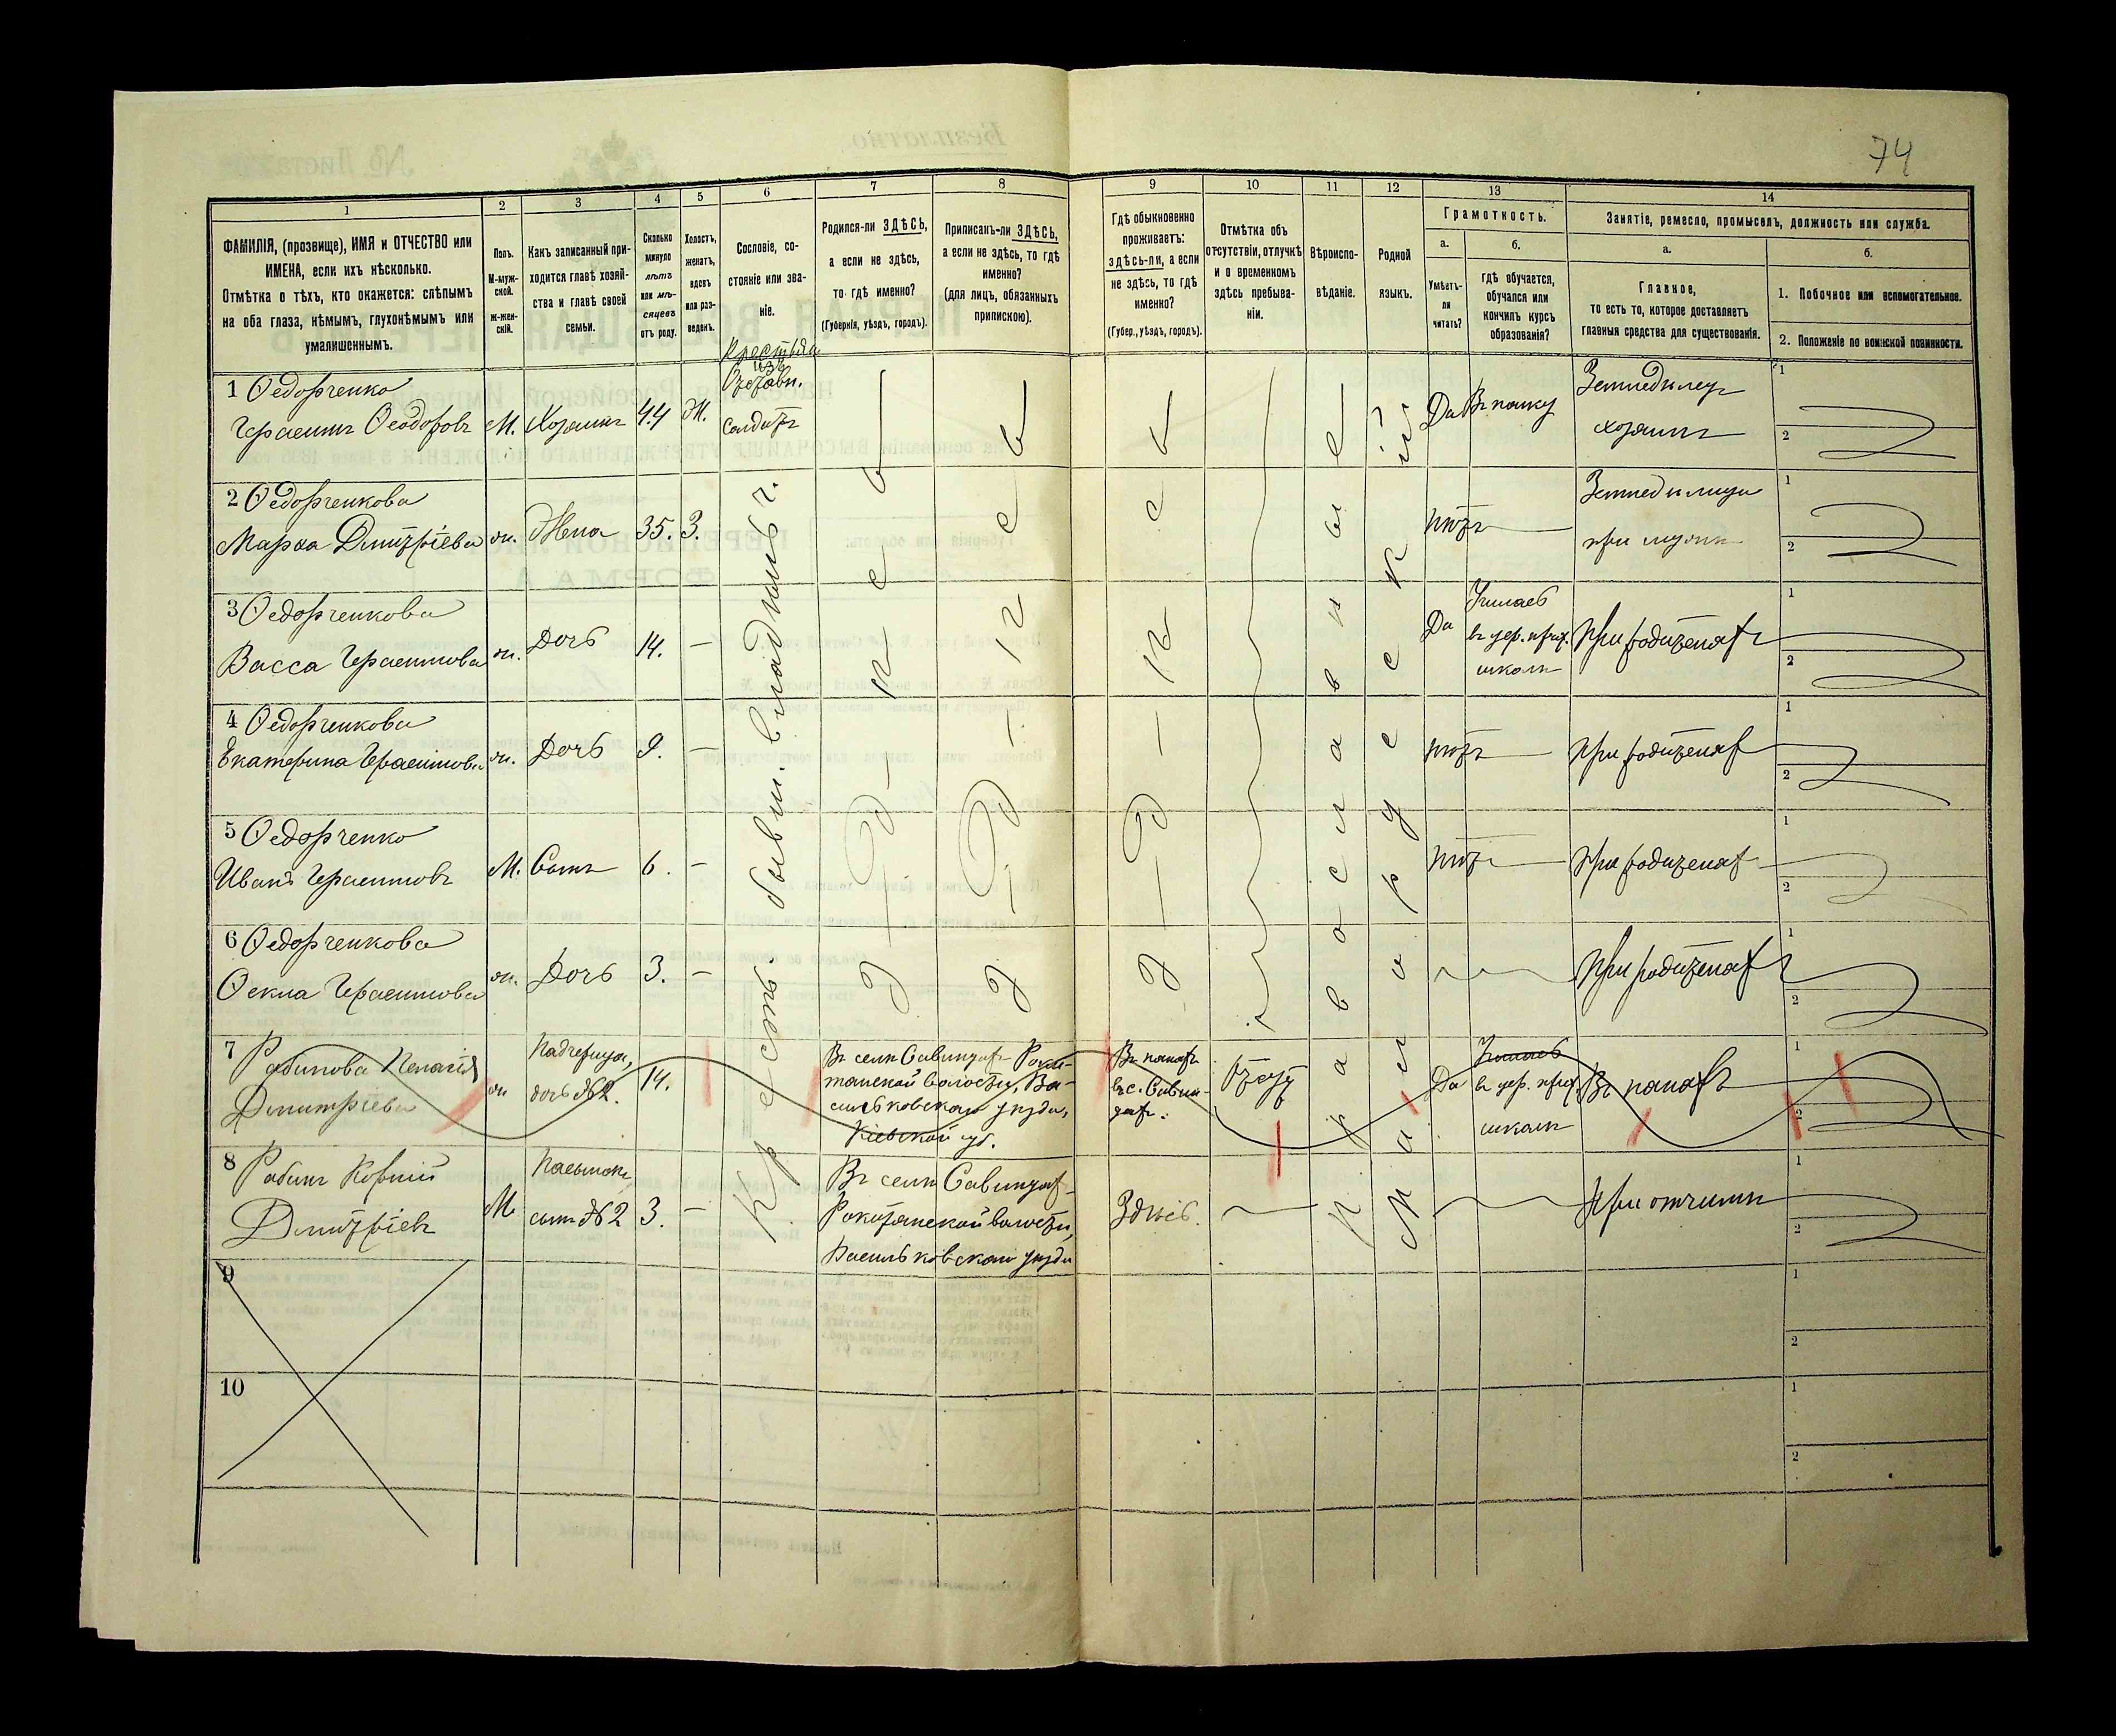 74
1
2
3
4
5
6
7
8
9
10
11
12
13
14
ФАМИЛІЯ, (прозвище), ИМЯ и ОТЧЕСТВО или
ИМЕНА, если ихъ нѣсколько.
Отмѣтка о тѣхъ, кто окажется: слѣпымъ
на оба глаза, нѣмымъ, глухонѣмымъ или
умалишеннымъ.
Полъ.
М-муж-
ской.
Ж-жен-
скій.
Какъ записанный при-
ходится главѣ хозяй-
ства и главѣ своей
семьи.
Сколько
минуло
лѣтъ
или мѣ-
сяцевъ
отъ роду.
Холостъ,
женатъ,
вдовъ
или раз-
веденъ.
Сословіе, со-
стояніе или зва-
ніе.
Родился-ли ЗДѢСЬ,
а если не здѣсь,
то гдѣ именно?
(Губернія, уѣздъ, городъ).
Приписанъ-ли ЗДѢСЬ,
а если не здѣсь, то гдѣ
именно?
(для лицъ, обязанныхъ
припискою).
Гдѣ обыкновенно
проживаетъ:
здѣсь-ли, а если
не здѣсь, то гдѣ
именно?
(Губер., уѣздъ, городъ).
Отмѣтка объ
отсутствіи, отлучкѣ
и о временномъ
здѣсь пребыва-
ніи.
Вѣроиспо-
вѣданіе.
Родной
языкъ.
Грамотность.
а.
Умѣетъ-
ли
читать?
б.
гдѣ обучается,
обучался или
кончилъ курсъ
образованія?
Занятіе, ремесло, промыселъ, должность или служба.
а.
Главное,
то есть то, которое доставляетъ
главныя средства для существованія.
б.
1. Побочное или вспомогательное.
2. Положеніе по воинской повинности.
1 Ѳедорченко
Герасимъ Ѳеодоровъ М. Хозяинъ 44 Ж.
изъ
Отставн.
солдатъ
Да Въ полку
Земледѣлецъ
хозяинъ
1
2
2 Ѳедорченкова
Марѳа Дмитріева ж. Жена 35. З.
нѣтъ
при мужѣ
1
2
3 Ѳедорченкова
Васса Герасимова ж. Дочь 14. —
Да
Училась
въ цер. прих.
школѣ
При родителяхъ
1
2
4 Ѳедорченкова
Екатерина Герасимова ж. Дочь 9. —
нѣтъ
При родителях
1
2
5 Ѳедорченко
Иванъ Герасимовъ М. Сынъ 6. —
нѣтъ
При родителях
1
2
6 Ѳедорченкова
Ѳекла Герасимова ж. Дочь 3. —
При родителях
1
2
Крест. бывш. владѣльч.
Здѣсь
Здѣсь
Здѣсь
Православный
Малорусскій
7 Рябинова Пелагія
Дмитріева ж
Падчерица,
дочь №2. 14.
Въ селѣ Савинцах Роки-
тянской волости, Ва-
сильковскаго уѣзда,
Кіевской губ.
Въ
въ с. Савин-
цах.
Да
Училась
въ цер. прих.
школѣ
1
2
8 Рябинъ Корній
Дмитріевъ М
Пасынокъ
сынъ №2 3. —
Въ селѣ Савинцах
Рокитянской волости,
Васильковскаго уѣзда
Здѣсь.
При отчимѣ
1
2
9
1
2
10
1
2